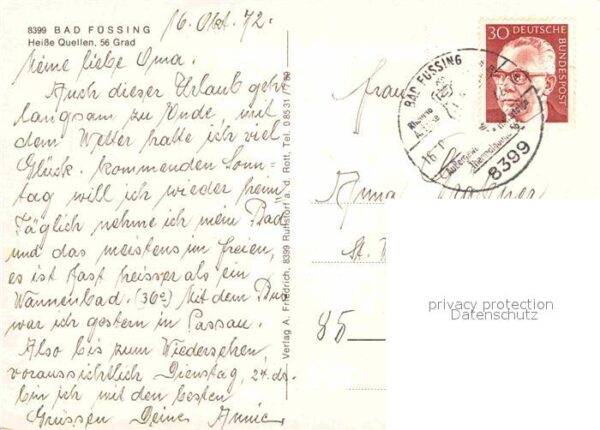 16. Okt. 72.
8399 BAD FÜSSING
Heiße Quellen, 56 Grad
Meine liebe Oma.
Auch dieser Urlaub geht
langsam zu Ende, mit
dem Wetter hatte ich viel
Glück. kommenden Sonn-
tag will ich wieder heim
Täglich nehme ich mein Bad
und das meistens im freien,
es ist fast heisser als ein
Wannenbad. (36°) Mit dem Bus
war ich gestern in Passau.
Also bis zum Wiedersehen,
voraussichtlich Dienstag, 24. ds.
bin ich mit den besten
Grüssen Deine Annie
Verlag A. Friedrich, 8399 Ruhstorf a. d. Rott, Tel. 0 85 31
30 DEUTSCHE
BUNDESPOST
BAD FÜSSING
8399
16.
Frau
Anna
St.
85
privacy protection
Datenschutz